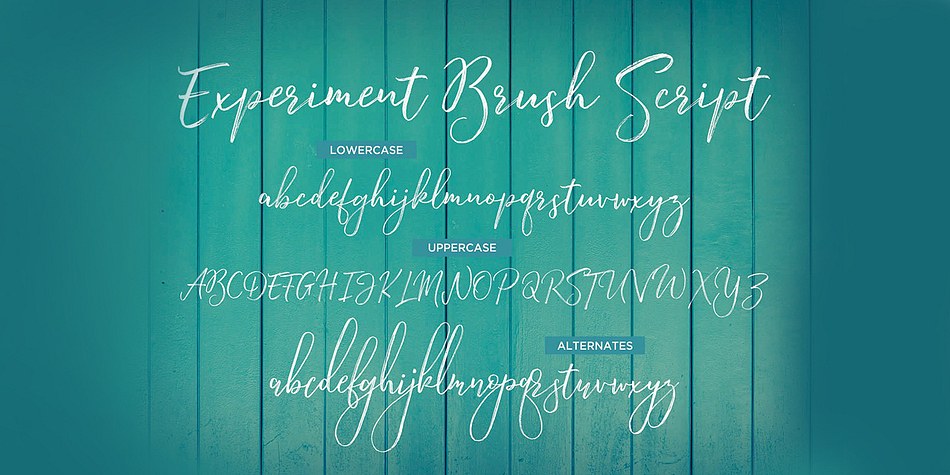 Experiment Brush Script
LOWERCASE
abcdefghijklmnopqrstuvwxyz
UPPERCASE
ABCDEFGHIJKLMNOPQRSTUVWXYZ
ALTERNATES
abcdefghijklmnopqrstuvwxyz